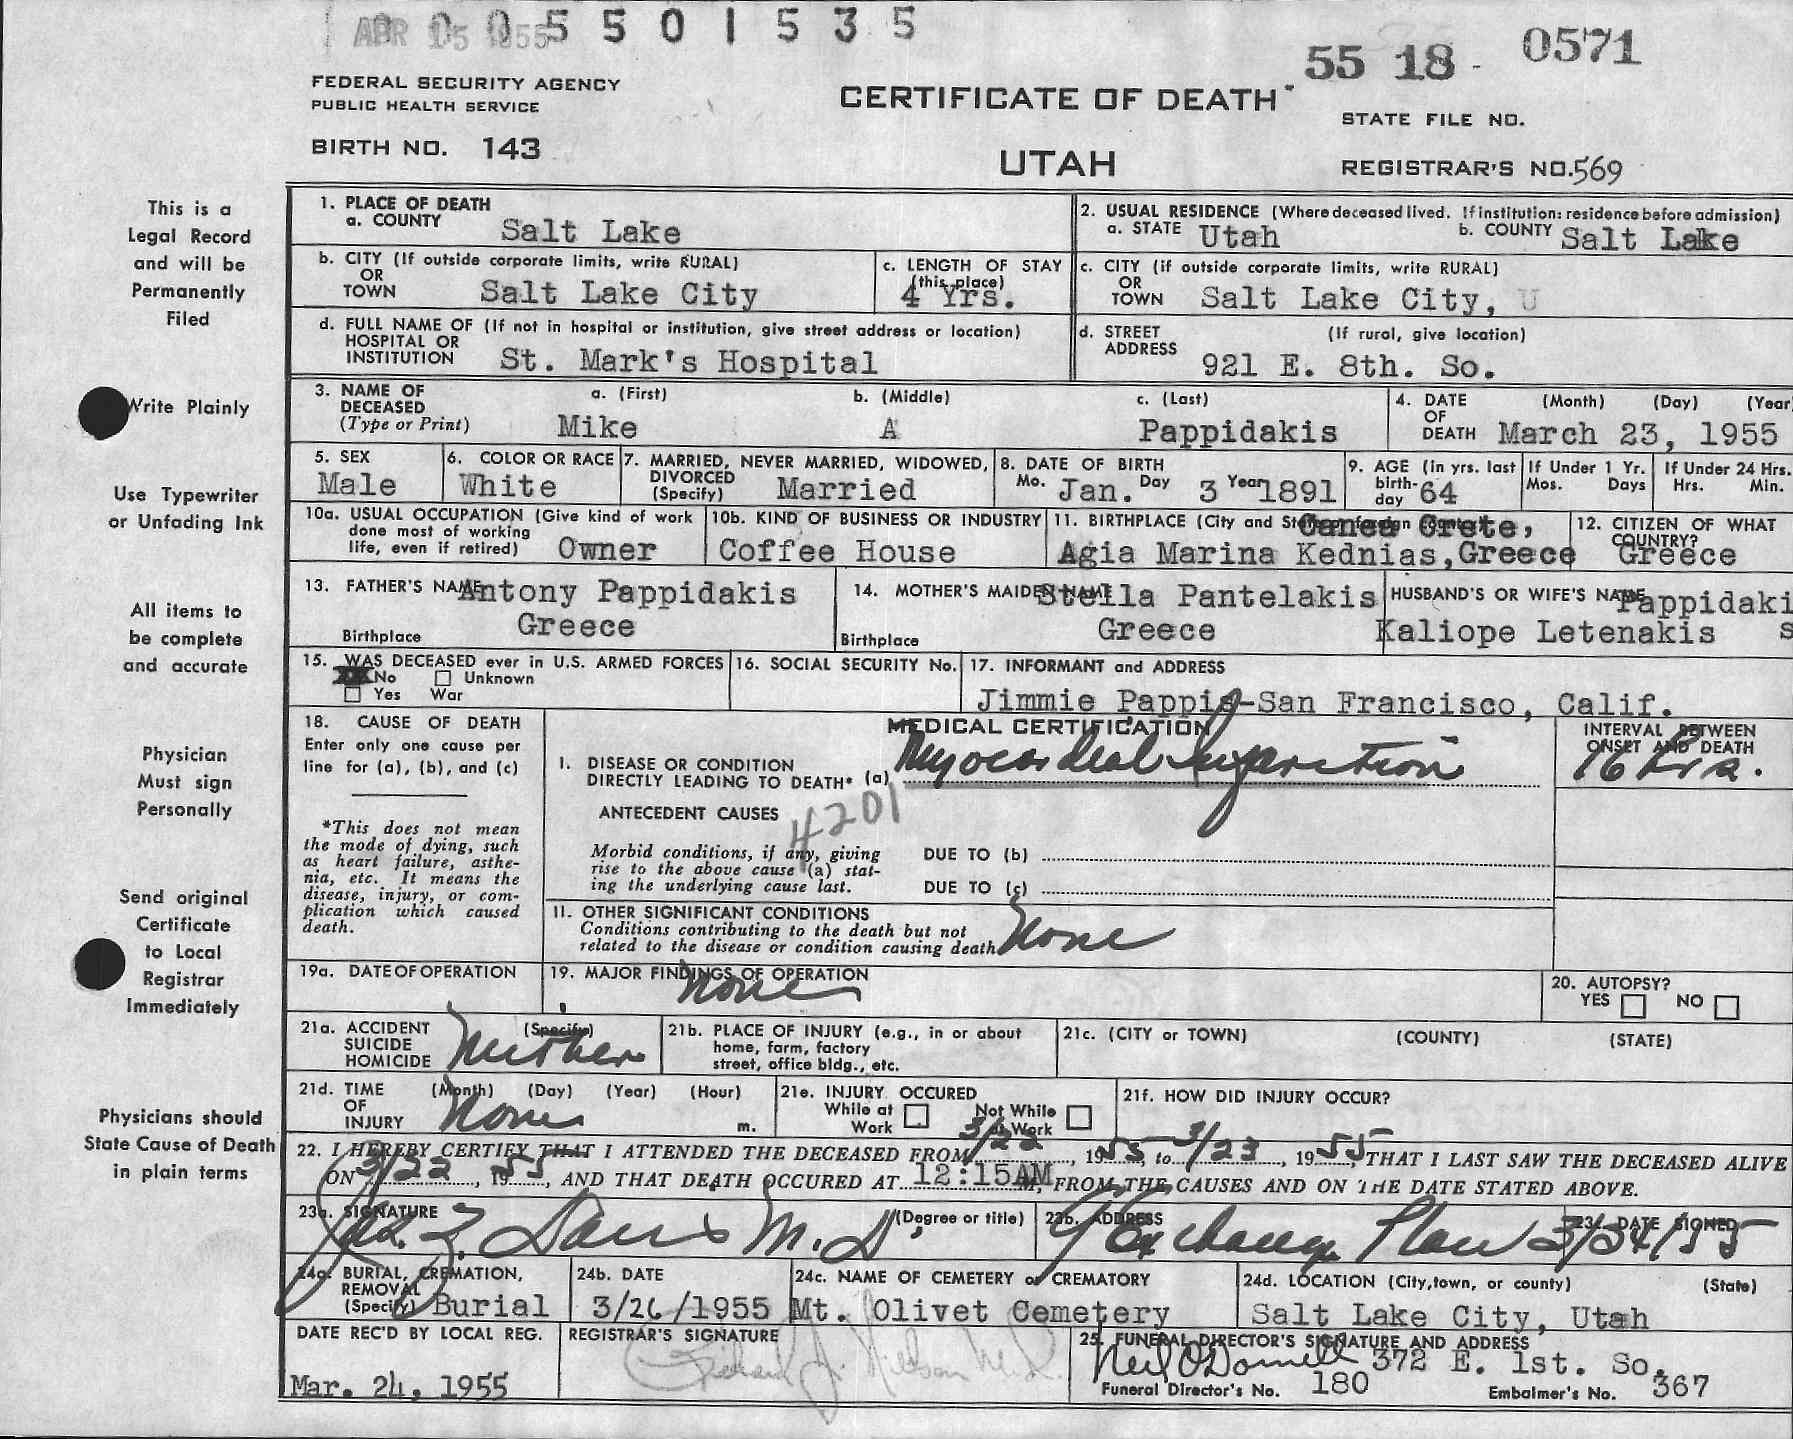 APR 15 1955
005501535
55 18 - 0571
FEDERAL SECURITY AGENCY
PUBLIC HEALTH SERVICE
CERTIFICATE OF DEATH
STATE FILE NO.
BIRTH NO. 143
UTAH
REGISTRAR'S NO. 569
This is a
Legal Record
and will be
Permanently
Filed
Write Plainly
Use Typewriter
or Unfading Ink
All items to
be complete
and accurate
Physician
Must sign
Personally
Send original
Certificate
to Local
Registrar
Immediately
Physicians should
State Cause of Death
in plain terms
1. PLACE OF DEATH
a. COUNTY Salt Lake
2. USUAL RESIDENCE (Where deceased lived. If institution: residence before admission)
a. STATE Utah b. COUNTY Salt Lake
b. CITY (If outside corporate limits, write RURAL)
OR
TOWN Salt Lake City
c. LENGTH OF STAY
(this place)
4 Yrs.
c. CITY (if outside corporate limits, write RURAL)
OR
TOWN Salt Lake City, U
d. FULL NAME OF (If not in hospital or institution, give street address or location)
HOSPITAL OR
INSTITUTION St. Mark's Hospital
d. STREET (If rural, give location)
ADDRESS
921 E. 8th. So.
3. NAME OF a. (First) b. (Middle) c. (Last)
DECEASED
(Type or Print) Mike A Pappidakis
4. DATE (Month) (Day) (Year
OF
DEATH March 23, 1955
5. SEX
Male
6. COLOR OR RACE
White
7. MARRIED, NEVER MARRIED, WIDOWED,
DIVORCED
(Specify) Married
8. DATE OF BIRTH
Mo. Jan. Day 3 Year 1891
9. AGE (in yrs. last
birth-
day 64
If Under 1 Yr.
Mos. Days
If Under 24 Hrs.
Hrs. Min.
10a. USUAL OCCUPATION (Give kind of work
done most of working
life, even if retired) Owner
10b. KIND OF BUSINESS OR INDUSTRY
Coffee House
11. BIRTHPLACE (City and State or foreign country)
Canea Crete,
Agia Marina Kednias, Greece
12. CITIZEN OF WHAT
COUNTRY?
Greece
13. FATHER'S NAME Antony Pappidakis
Birthplace Greece
14. MOTHER'S MAIDEN NAME Stella Pantelakis
Birthplace Greece
HUSBAND'S OR WIFE'S NAME Pappidaki
Kaliope Letenakis s
15. WAS DECEASED ever in U.S. ARMED FORCES
No Unknown
Yes War
16. SOCIAL SECURITY No.
17. INFORMANT and ADDRESS
Jimmie Pappis-San Francisco, Calif.
18. CAUSE OF DEATH
Enter only one cause per
line for (a), (b), and (c)
*This does not mean
the mode of dying, such
as heart failure, asthe-
nia, etc. It means the
disease, injury, or com-
plication which caused
death.
MEDICAL CERTIFICATION
I. DISEASE OR CONDITION
DIRECTLY LEADING TO DEATH* (a) Myocardial Infarction
INTERVAL BETWEEN
ONSET AND DEATH
16 hrs.
ANTECEDENT CAUSES
4201
Morbid conditions, if any, giving
rise to the above cause (a) stat-
ing the underlying cause last.
DUE TO (b)
DUE TO (c)
II. OTHER SIGNIFICANT CONDITIONS
Conditions contributing to the death but not
related to the disease or condition causing death None
19a. DATE OF OPERATION
19. MAJOR FINDINGS OF OPERATION
None
20. AUTOPSY?
YES NO
21a. ACCIDENT (Specify)
SUICIDE
HOMICIDE Neither
21b. PLACE OF INJURY (e.g., in or about
home, farm, factory
street, office bldg., etc.
21c. (CITY or TOWN) (COUNTY) (STATE)
21d. TIME (Month) (Day) (Year) (Hour)
OF
INJURY None m.
21e. INJURY OCCURED
While at Work Not While at Work
21f. HOW DID INJURY OCCUR?
22. I HEREBY CERTIFY THAT I ATTENDED THE DECEASED FROM 3/22, 1955, to 3/23, 1955, THAT I LAST SAW THE DECEASED ALIVE
ON 3/22, 1955, AND THAT DEATH OCCURED AT 12:15AM M, FROM THE CAUSES AND ON THE DATE STATED ABOVE.
23a. SIGNATURE (Degree or title)
Jas. Z. Davis M.D.
23b. ADDRESS
9 Exchange Place
23c. DATE SIGNED
3/24/55
24a. BURIAL, CREMATION,
REMOVAL
(Specify) Burial
24b. DATE
3/26/1955
24c. NAME OF CEMETERY or CREMATORY
Mt. Olivet Cemetery
24d. LOCATION (City, town, or county) (State)
Salt Lake City, Utah
DATE REC'D BY LOCAL REG.
Mar. 24, 1955
REGISTRAR'S SIGNATURE
25. FUNERAL DIRECTOR'S SIGNATURE AND ADDRESS
Neil O'Donnell 372 E. 1st. So.
Funeral Director's No. 180 Embalmer's No. 367